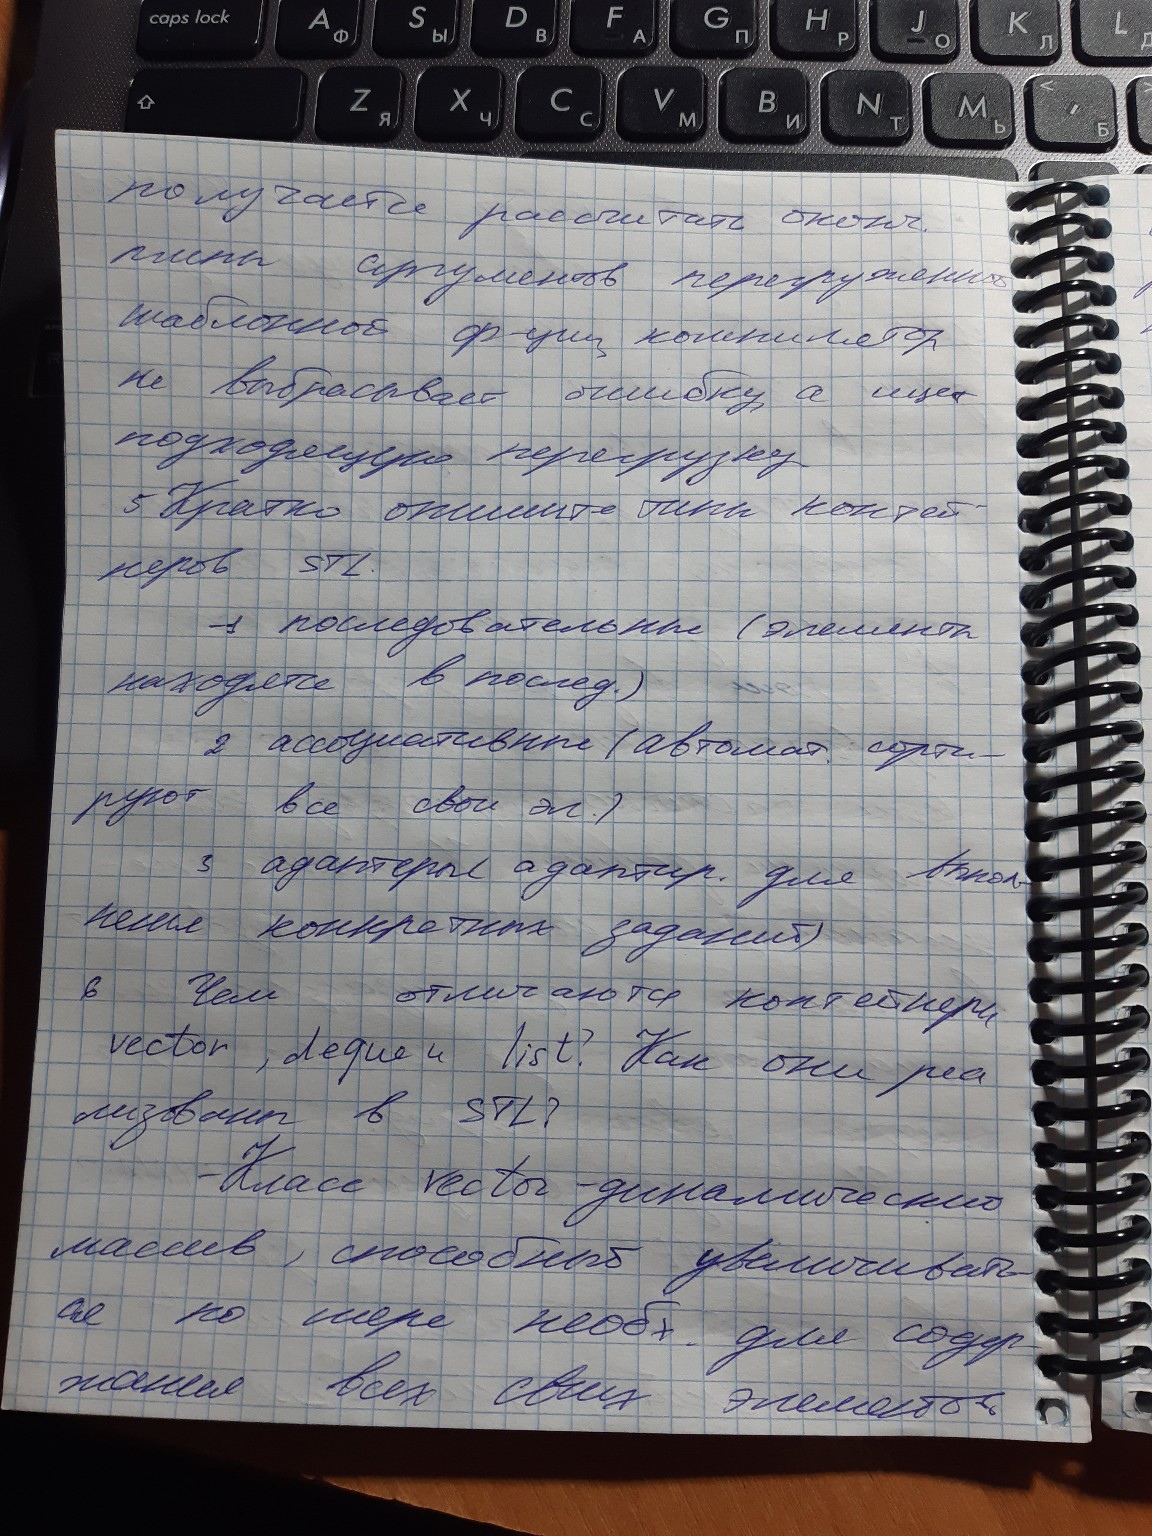 caps lock A Ф S Ы D В F А G П H Р J О K Л L Д
Z Я X Ч C С V М B И N Т M Ь < , Б
получается рассчитать оконч.
типы аргументов перегруженной
шаблонной ф-ции, компилятор
не выбрасывает ошибку, а ищет
подходящую перегрузку
5 Кратко опишите типы контей-
неров STL.
1 последовательные (элементы
находятся в послед.)
2 ассоциативные (автомат. сорти-
руют все свои эл.)
3 адаптеры (адаптир. для выпол-
нения конкретных заданий)
6 Чем отличаются контейнеры
vector, deque и list? Как они реа
лизованы в STL?
- Класс vector - динамический
массив, способный увеличивать-
ся по мере необх. для содер-
жания всех своих элементов